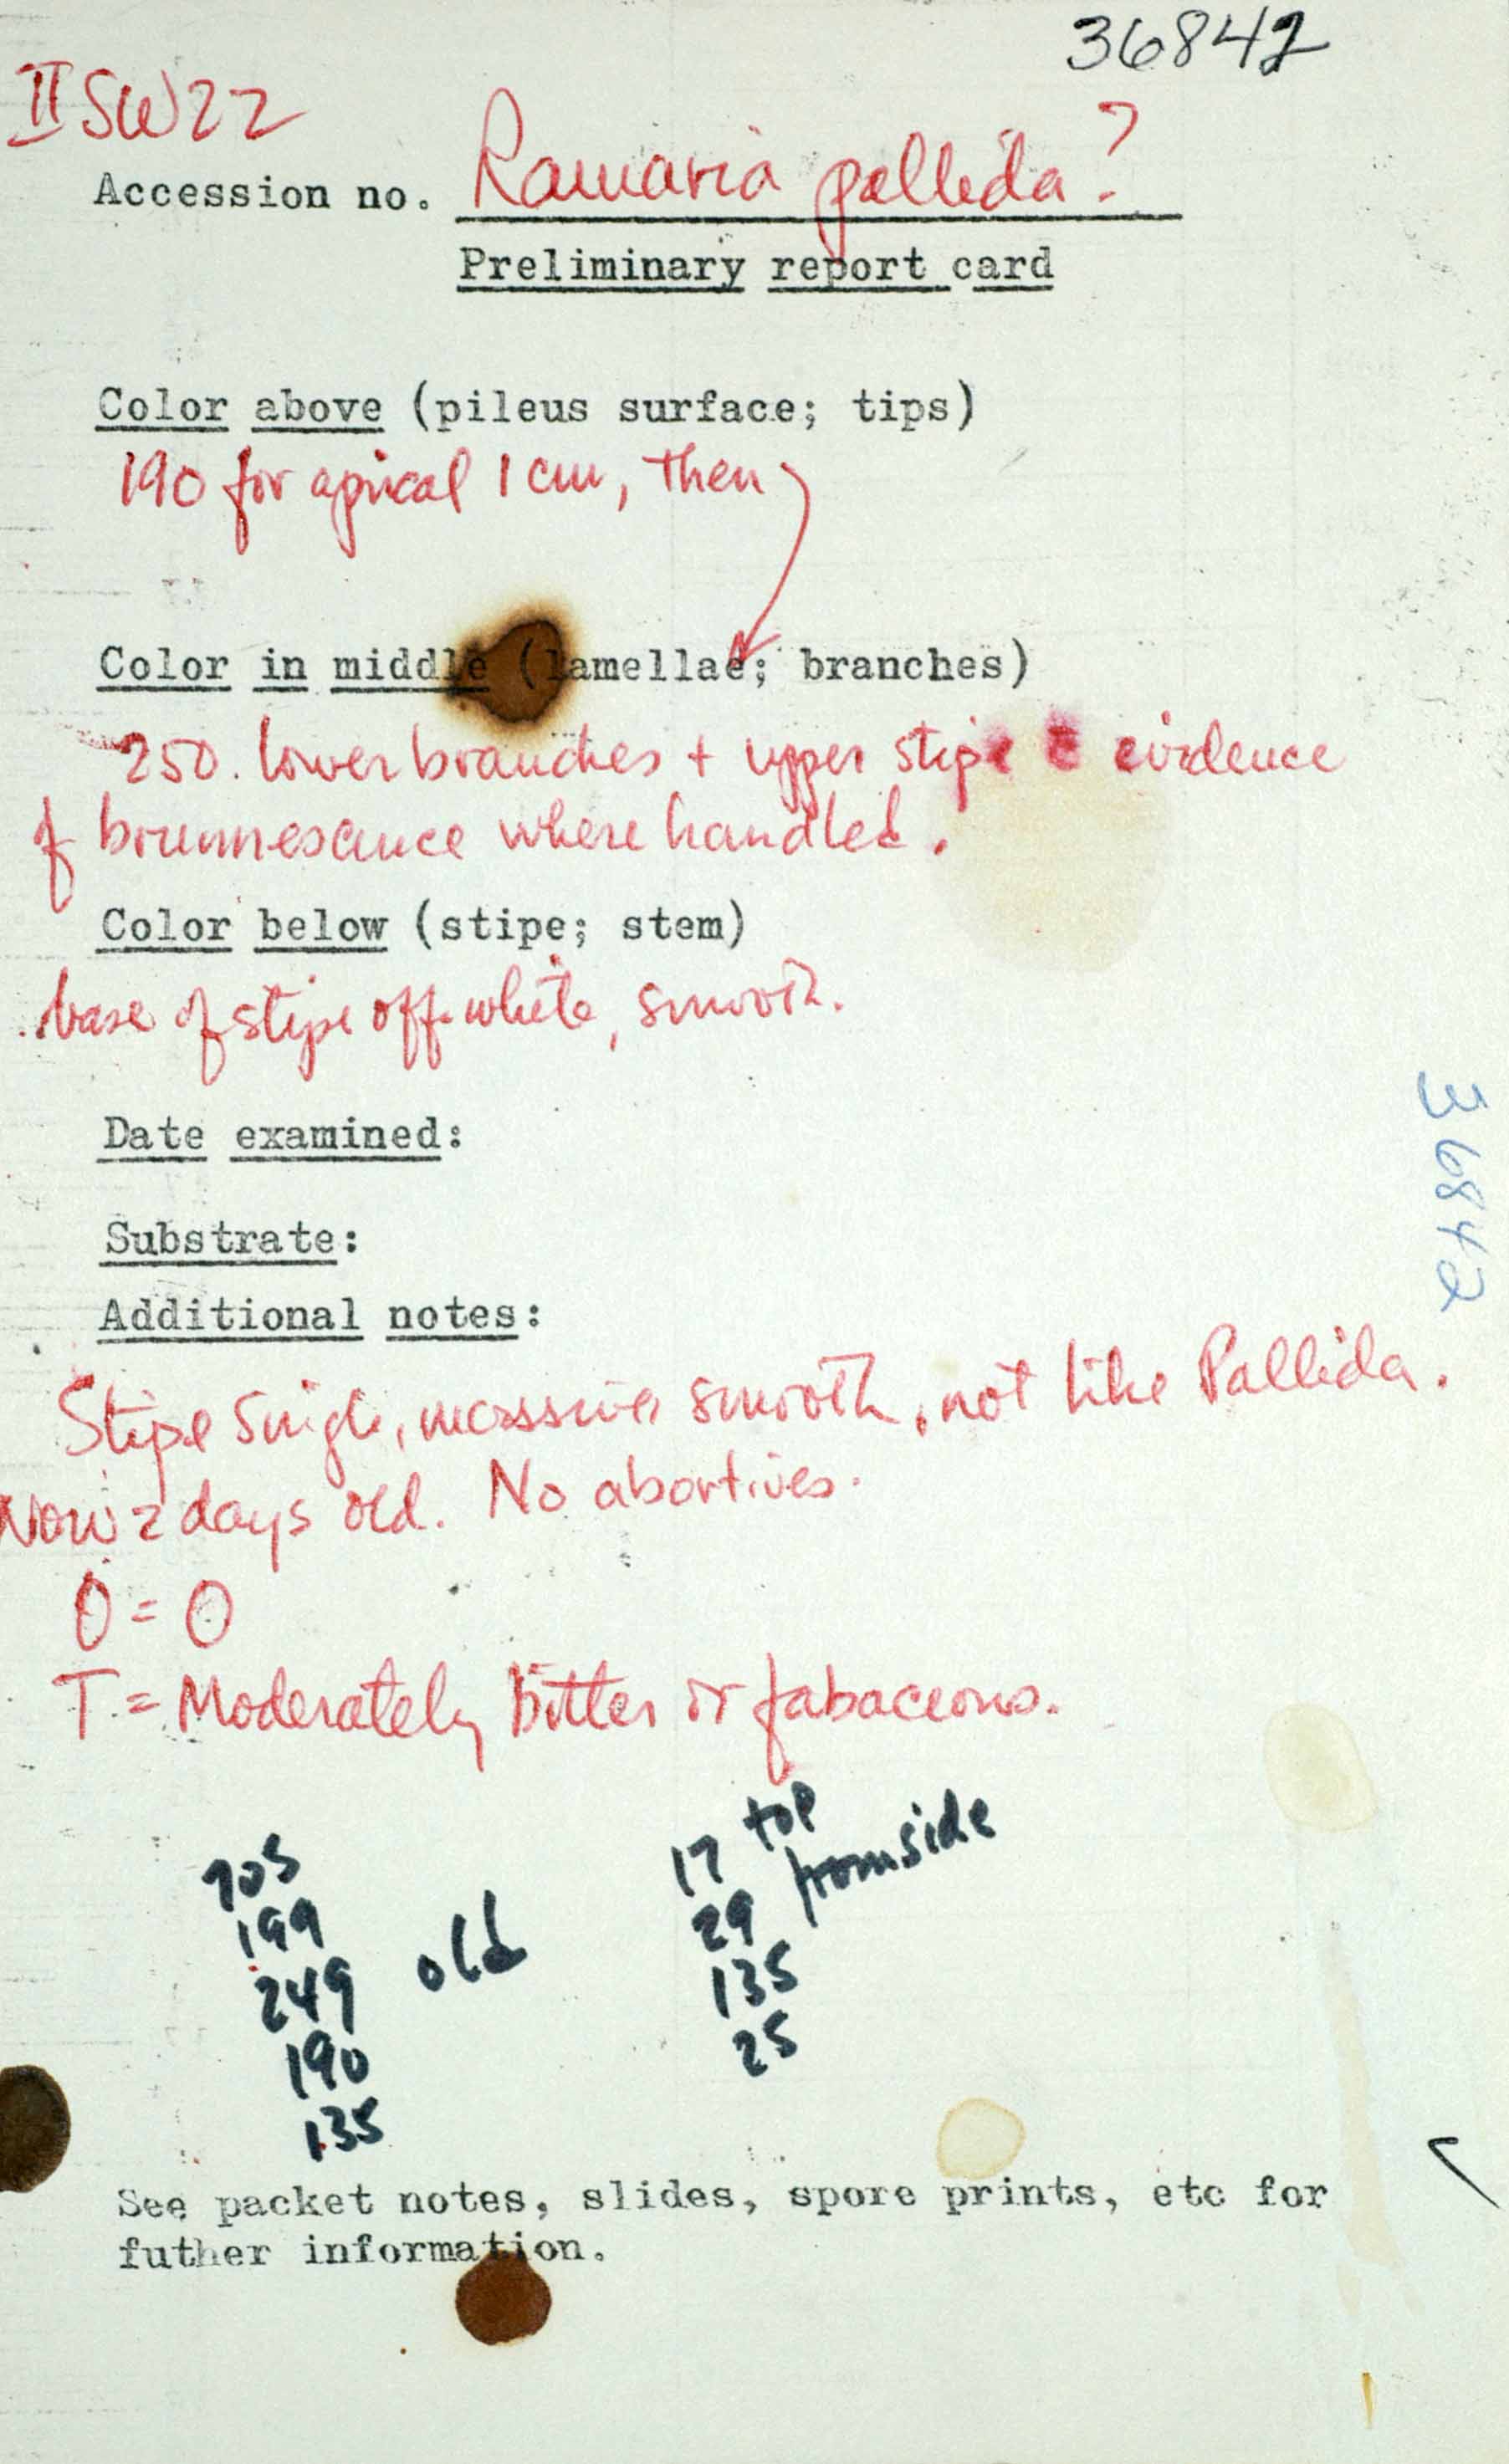 36842
II SW22
Accession no. Ramaria pallida?
Preliminary report card
Color above (pileus surface; tips)
190 for apical 1 cm, then
Color in middle (lamellae; branches)
250. lower branches + upper stipe c̄ evidence
of brunnescence where handled.
Color below (stipe; stem)
base of stipe off-white, smooth.
Date examined:
Substrate:
Additional notes:
Stipe single, massive, smooth, not like Pallida.
Now 2 days old. No abortives.
O = O
T = Moderately bitter or fabaceous.
17 top
29 from side
135
25
705
199
249 old
190
135
See packet notes, slides, spore prints, etc for
futher information.
36842